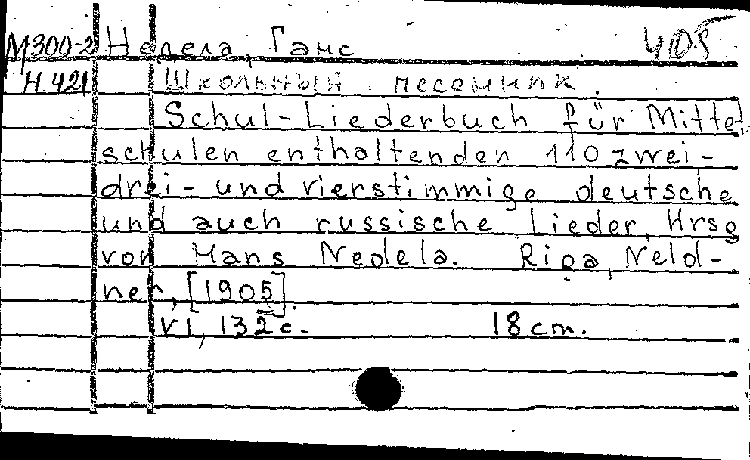 М300-2 Недела, Ганс 405
Н.421 Школьный песенник.
Schul-Liederbuch für Mittel
schulen enthaltenden 110 zwei-
drei- und vierstimmige deutsche
und auch russische Lieder. Hrsg
von Hans Nedela. Riga, Neld-
ner, [1905].
VI, 132 с. 18 cm.